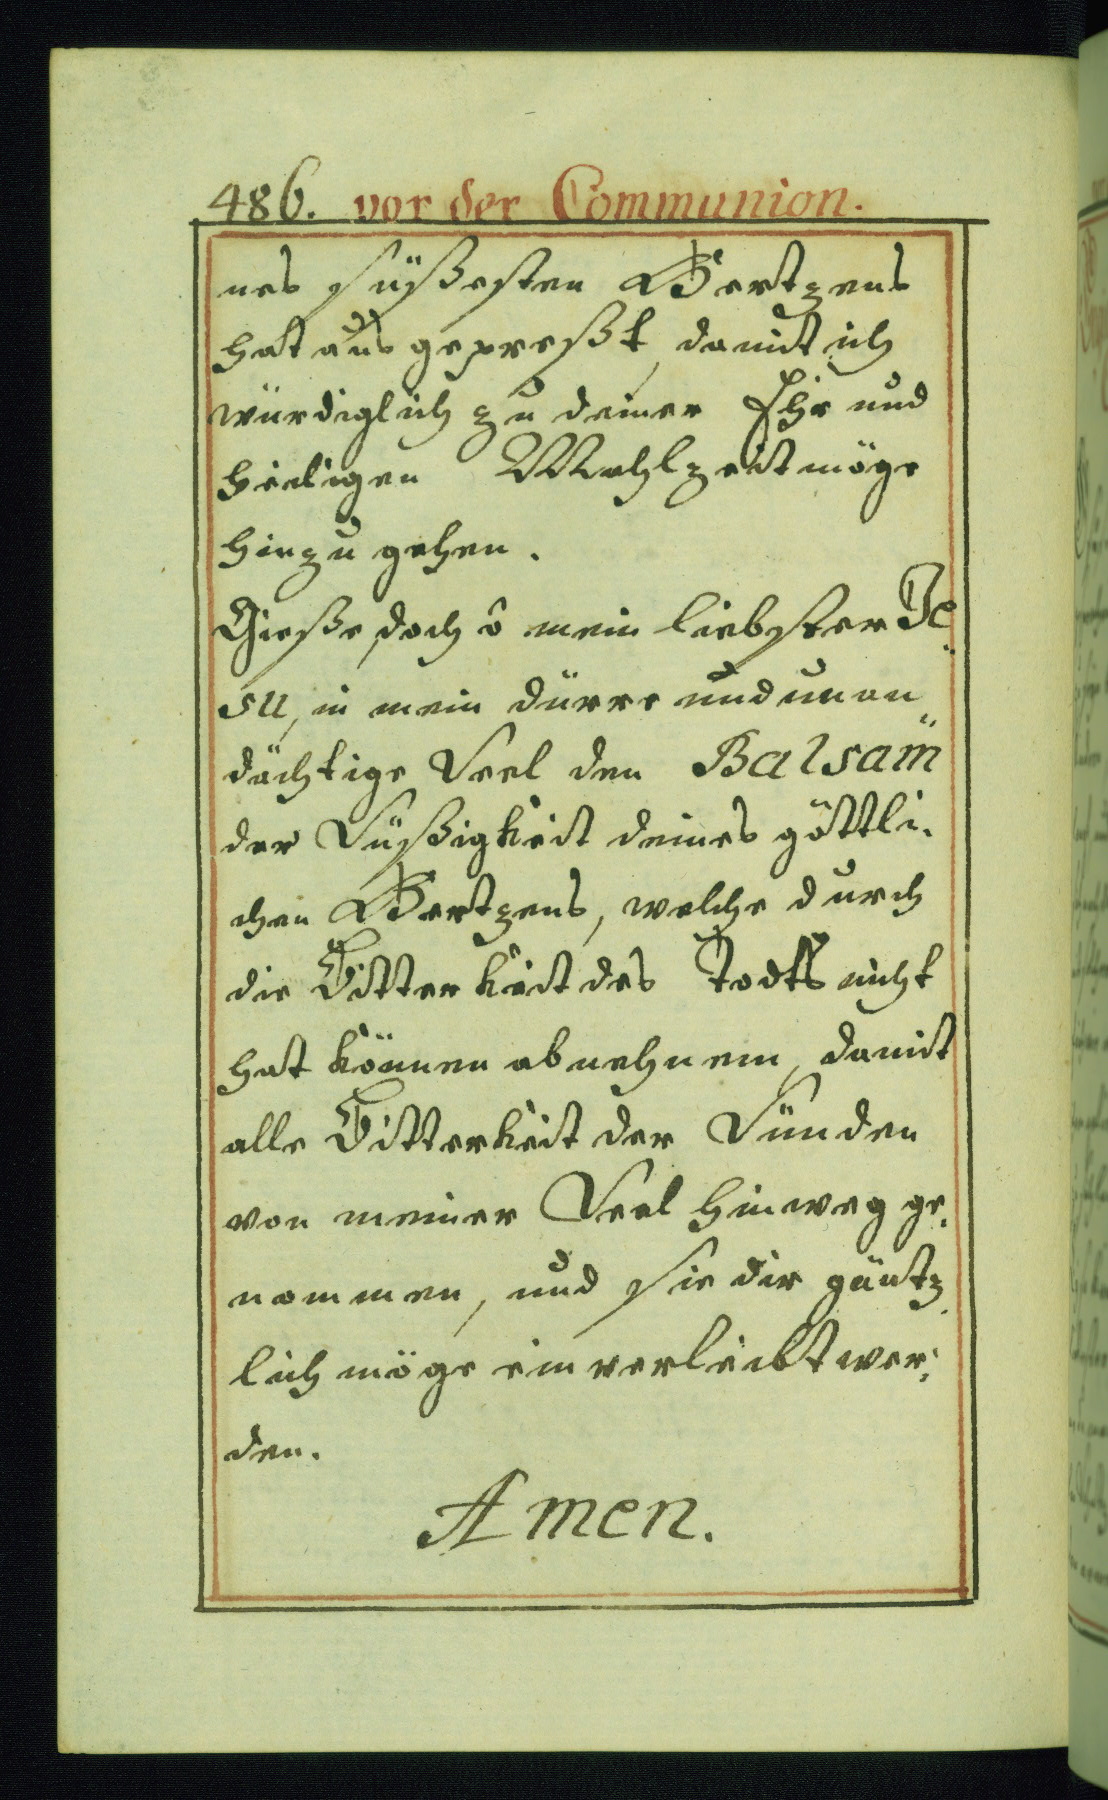 486. vor der Communion.
nes süßesten Hertzens
hat aus gepreßt, damit ich
würdiglich zu deiner Ehr und
heiligen Mahlzeit möge
hinzu gehen.
Gieße doch ô mein liebster Je„
su, in mein dürre und unan„
dächtige Seel den Balsam̈
der Süßigkeit deines göttli„
chen Hertzens, welche durch
die Bitterkeit des Todts nicht
hat können abnehmen, damit
alle Bitterkeit der Sünden
von meiner Seel hinweg ge„
nommen, und sie dir gäntz„
lich möge einverleibt wer„
den.
Amen.